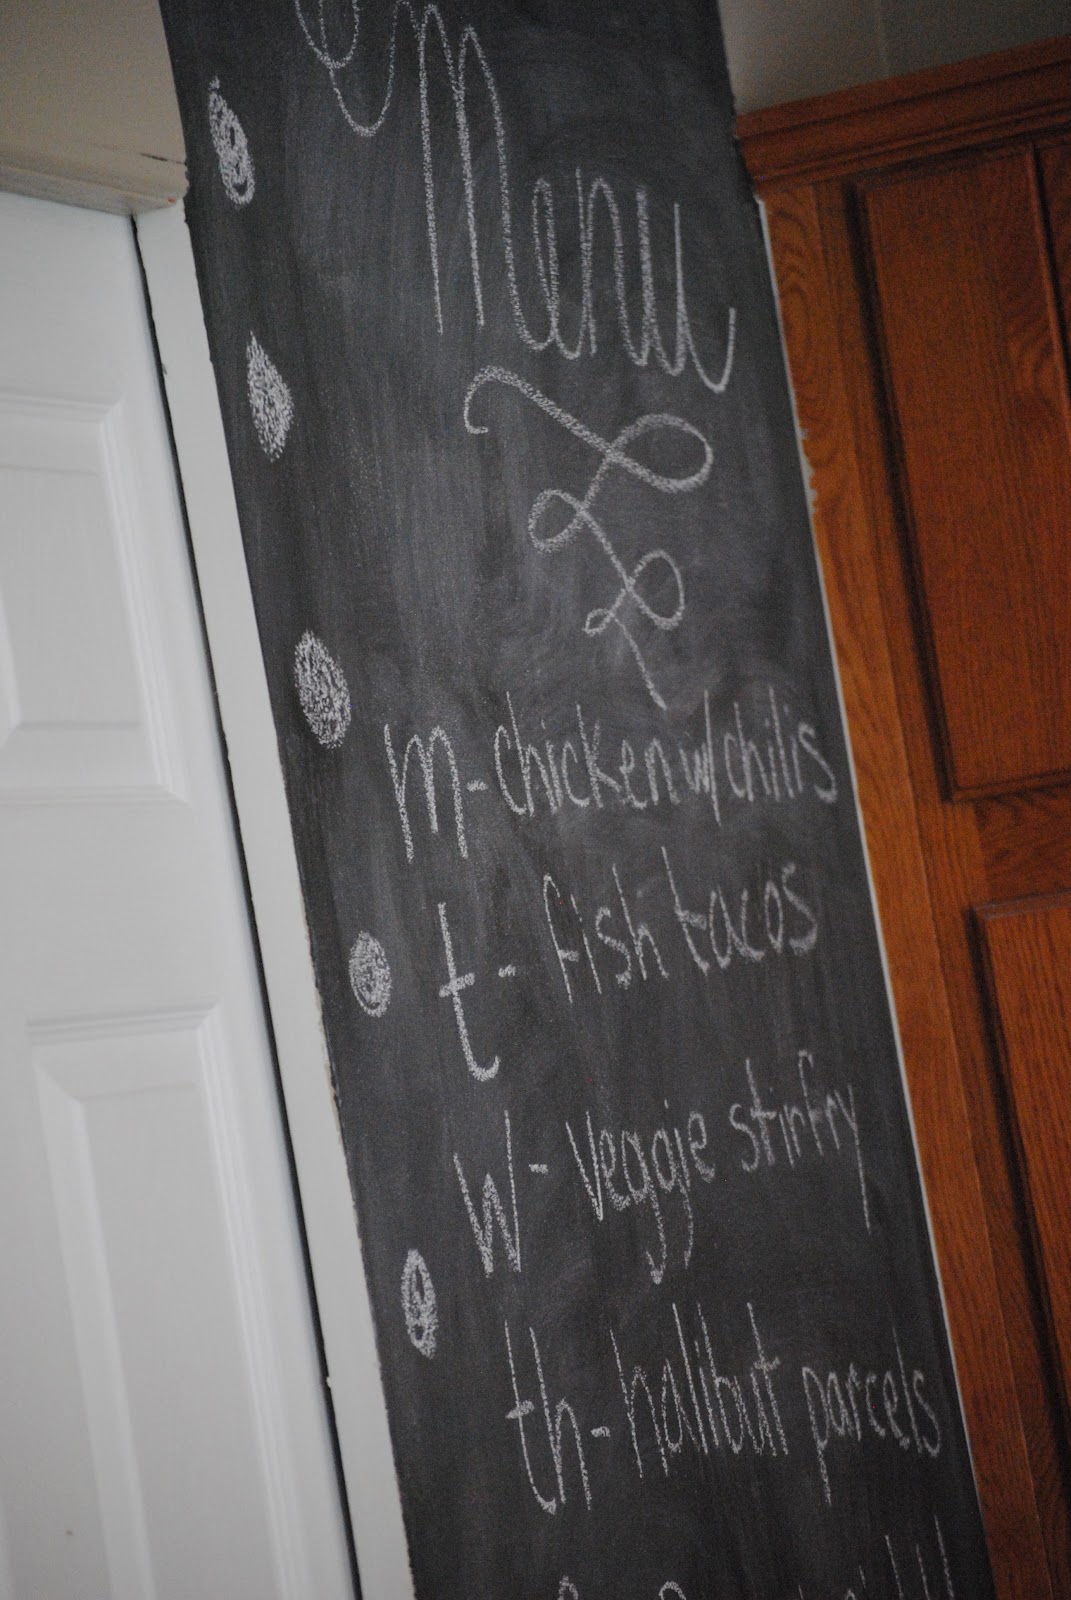 Menu
m-chicken w/chilis
t- fish tacos
w- veggie stirfry
th-halibut parcels